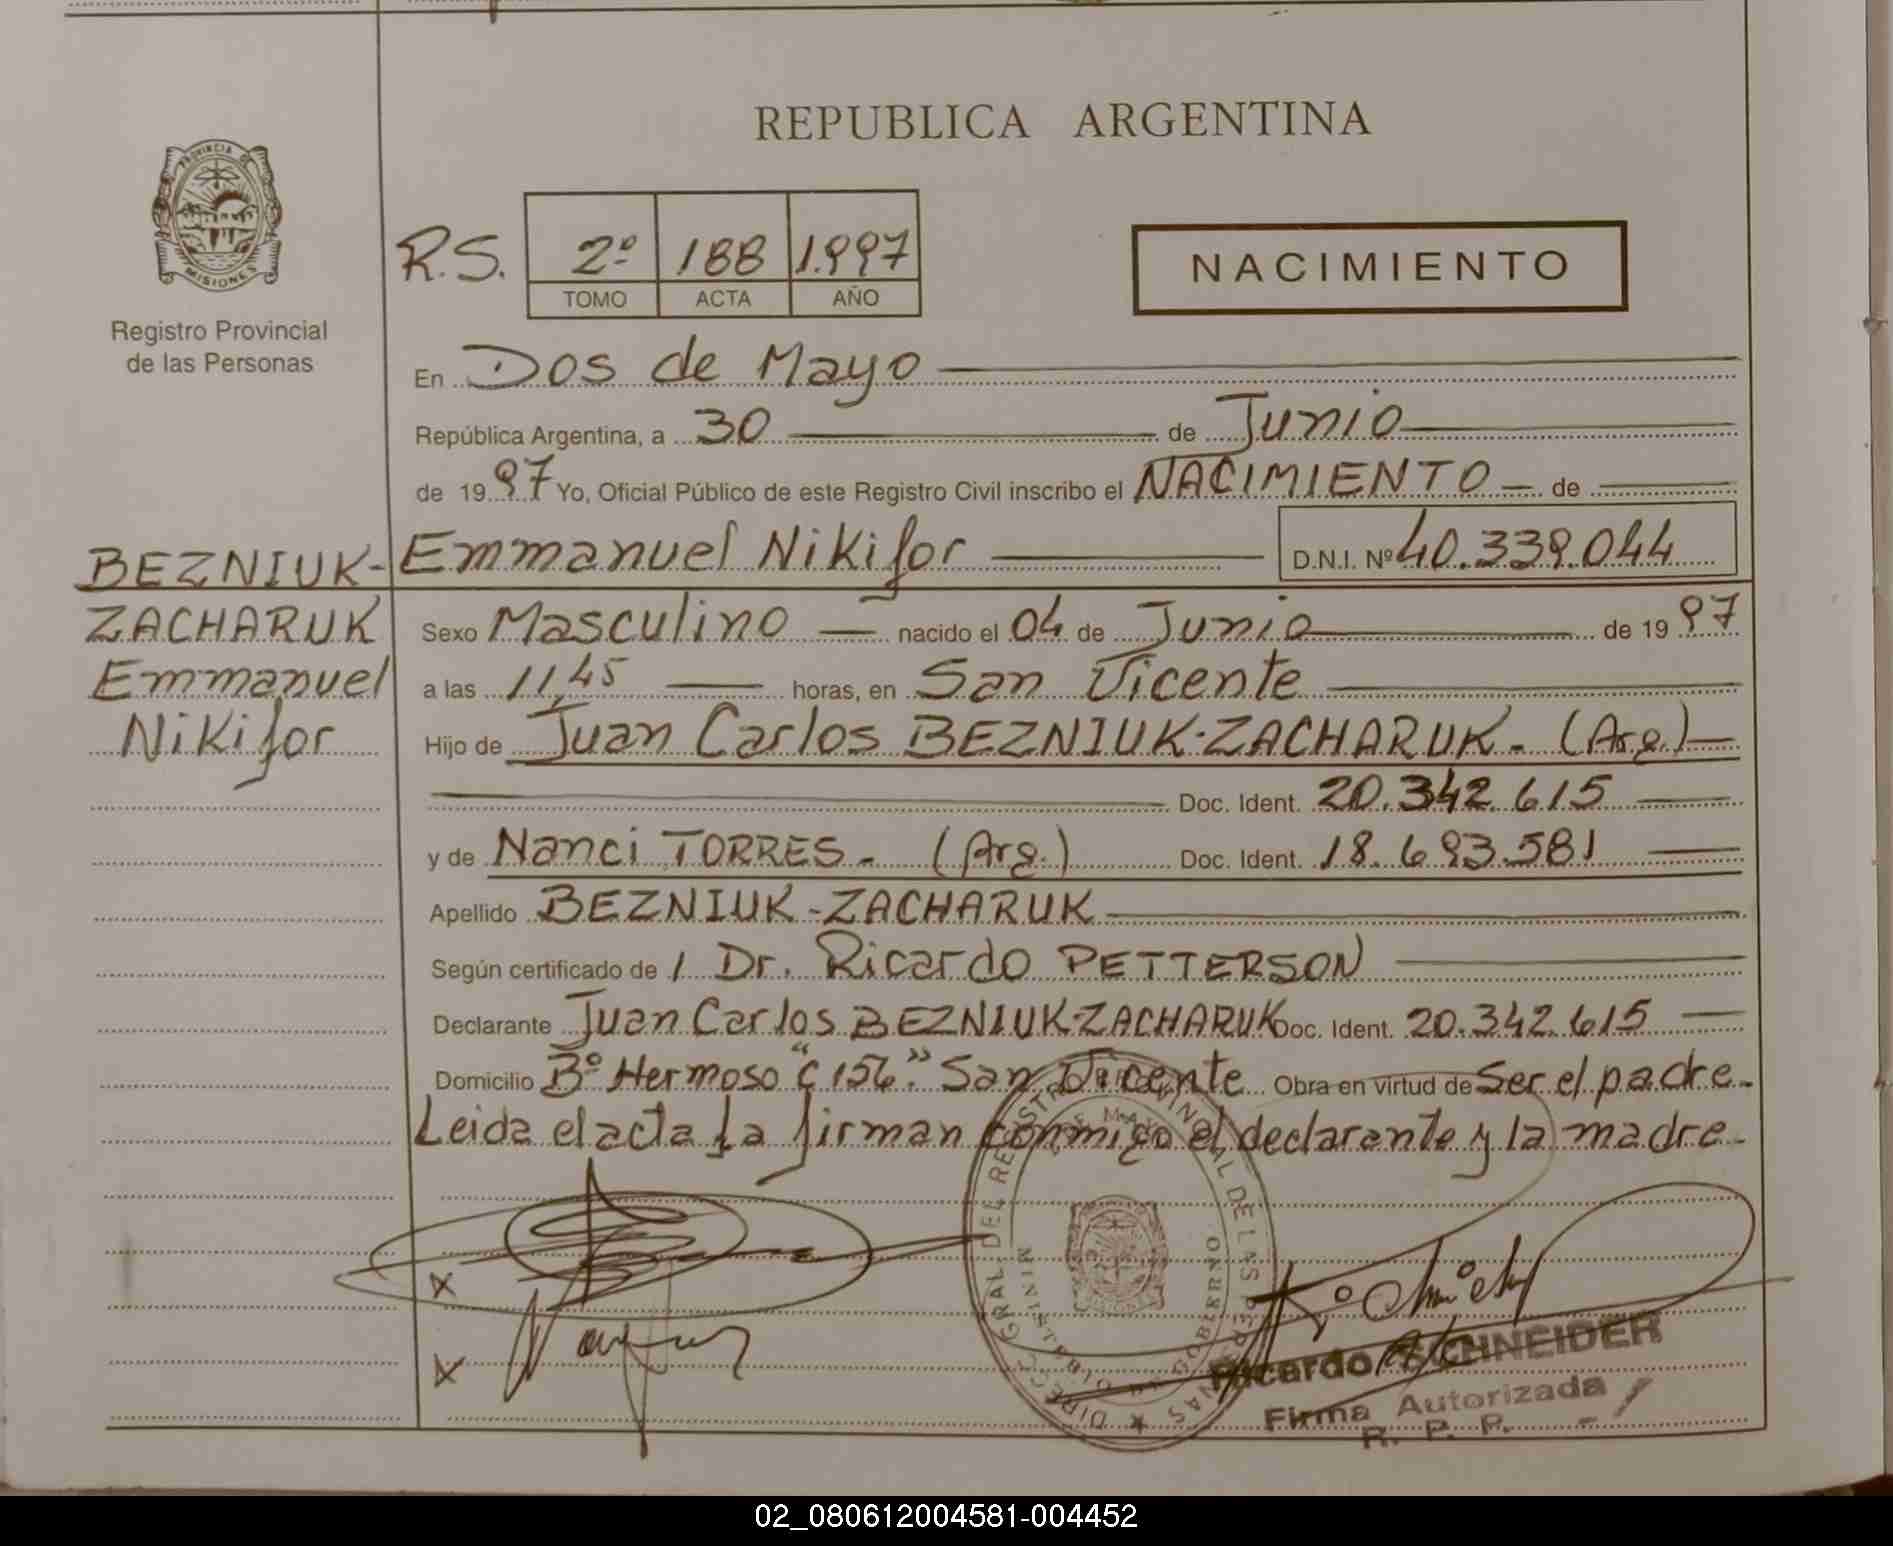 REPUBLICA ARGENTINA
PROVINCIA DE
MISIONES
Registro Provincial
de las Personas
R.S. 2º 188 1.997
TOMO ACTA AÑO
NACIMIENTO
En Dos de Mayo
República Argentina, a 30 de Junio
de 1997 Yo, Oficial Público de este Registro Civil inscribo el NACIMIENTO de
BEZNIUK-
ZACHARUK
Emmanuel
Nikifor
Emmanuel Nikifor D.N.I. Nº 40.339.044
Sexo Masculino nacido el 04 de Junio de 1997
a las 11,45 horas, en San Vicente
Hijo de Juan Carlos BEZNIUK-ZACHARUK. (Arg.)
Doc. Ident. 20.342.615
y de Nanci TORRES. (Arg.) Doc. Ident. 18.693.581
Apellido BEZNIUK-ZACHARUK
Según certificado de / Dr. Ricardo PETTERSON
Declarante Juan Carlos BEZNIUK-ZACHARUK Doc. Ident. 20.342.615
Domicilio Bº Hermoso "C 156". San Vicente Obra en virtud de Ser el padre.
Leida el acta la firman conmigo el declarante y la madre.
DIRECC. GRAL. DEL REGISTRO PROVINCIAL DE LAS PERSONAS
GOBIERNO
Ricardo SCHNEIDER
Firma Autorizada
R. P. P.
02_080612004581-004452